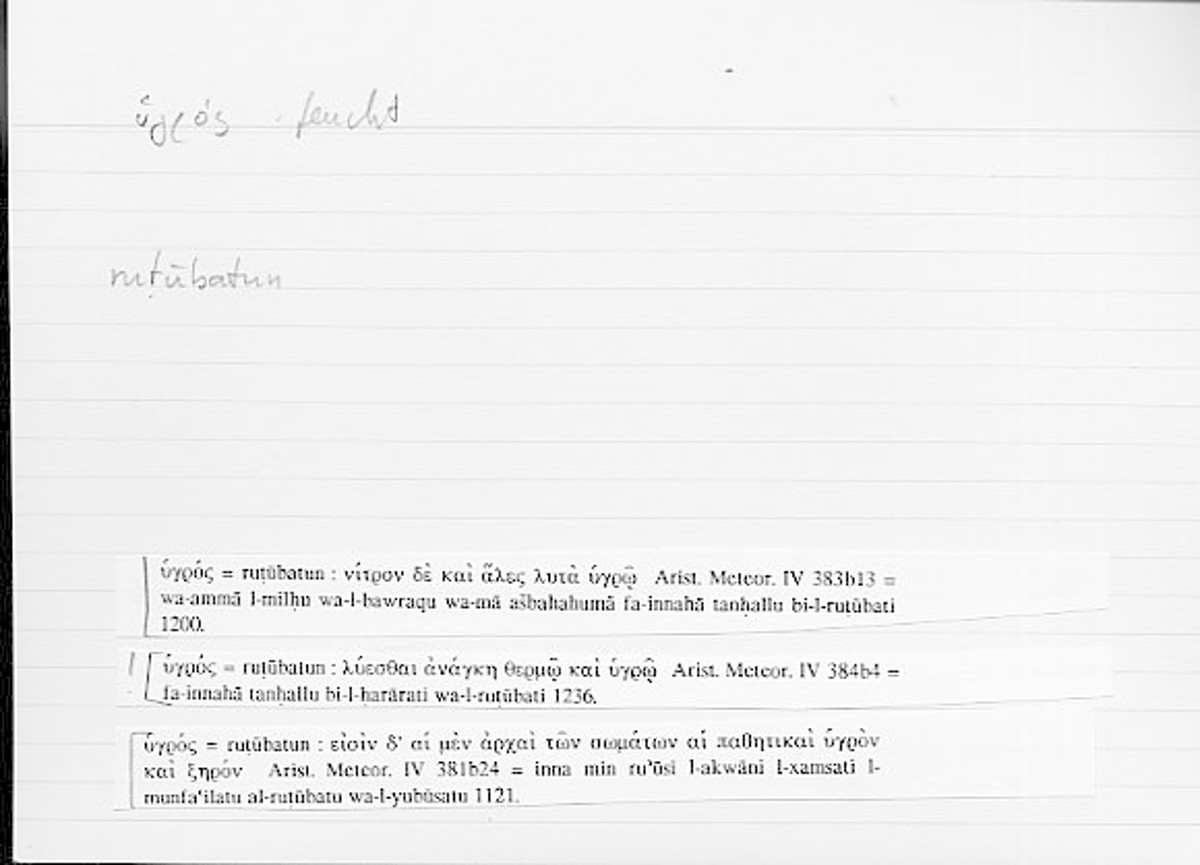 ὑγρός feucht
ruṭūbatun
ὑγρός = ruṭūbatun : νίτρον δὲ καὶ ἅλες λυτὰ ὑγρῷ Arist. Meteor. IV 383b13 =
wa-ammā l-milḥu wa-l-bawraqu wa-mā ašbahahumā fa-innahā tanḥallu bi-l-ruṭūbati
1200.
ὑγρός = ruṭūbatun : λύεσθαι ἀνάγκη θερμῷ καὶ ὑγρῷ Arist. Meteor. IV 384b4 =
fa-innahā tanḥallu bi-l-ḥarārati wa-l-ruṭūbati 1236.
ὑγρός = ruṭūbatun : εἰσὶν δ' αἱ μὲν ἀρχαὶ τῶν σωμάτων αἱ παθητικαὶ ὑγρὸν
καὶ ξηρόν Arist. Meteor. IV 381b24 = inna min ru'ūsi l-akwāni l-xamsati l-
munfa'ilatu al-ruṭūbatu wa-l-yubūsatu 1121.